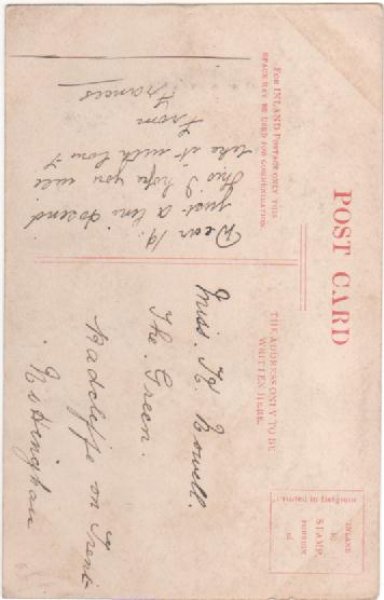 POST CARD
FOR INLAND POSTAGE ONLY THIS
SPACE MAY BE USED FOR COMMUNICATION.
THE ADDRESS ONLY TO BE
WRITTEN HERE.
INLAND
½d
STAMP.
FOREIGN
1d
Printed in
Dear
just a line to send
this I hope you will
like it with love
from
Frances
Miss. K. Nowell.
The. Green.
Radcliffe on Trent
Nottingham